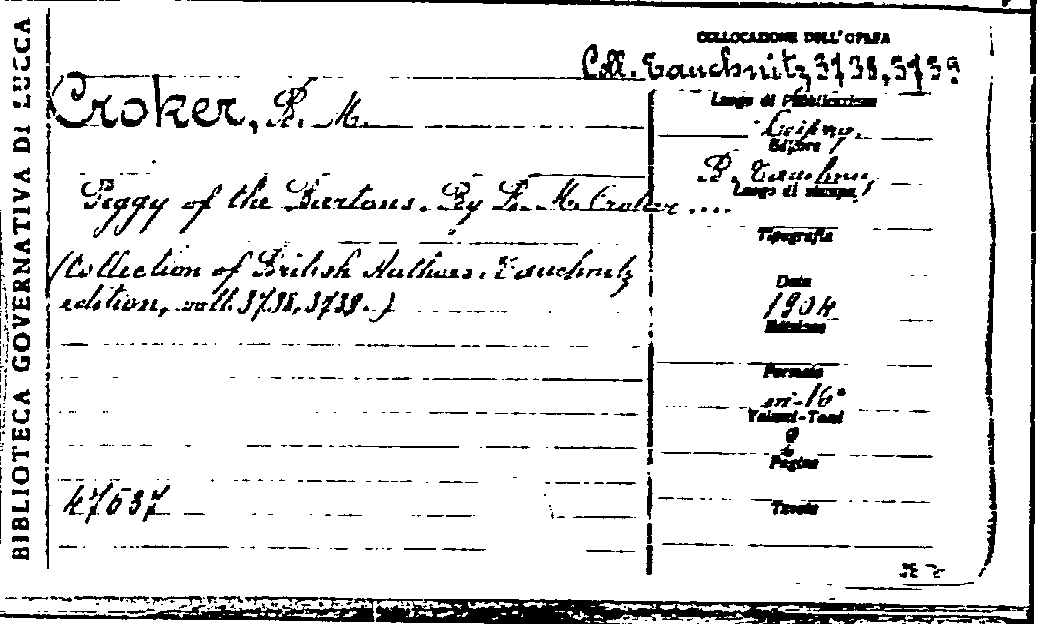 BIBLIOTECA GOVERNATIVA DI LUCCA
COLLOCAZIONE DELL'OPERA
Coll. Tauchnitz, 3738, 3739
Croker, B. M.
Peggy of the Bartons. By B. M. Croker ....
(Collection of British Authors. Tauchnitz
edition, voll. 3738, 3739.)
47537
Luogo di Pubblicazione
Leipzig
Editore
B. Tauchnitz
Luogo di stampa
Tipografia
Data
1904
Edizione
Formato
in-16°
Volumi-Tomi
2
Pagine
Tavole